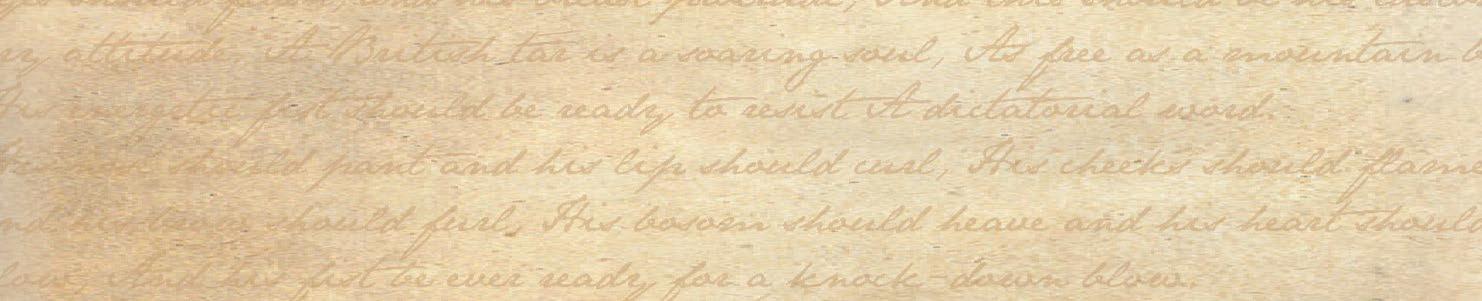 should be his
ry attitude. A British tar is a soaring soul, As free as a mountain b
his energetic fist should be ready to resist A dictatorial word.
His nose should pant and his lip should curl, His cheeks should flam
nd his brow should furl, His bosom should heave and his heart should
low, And his fist be ever ready for a knock-down blow.